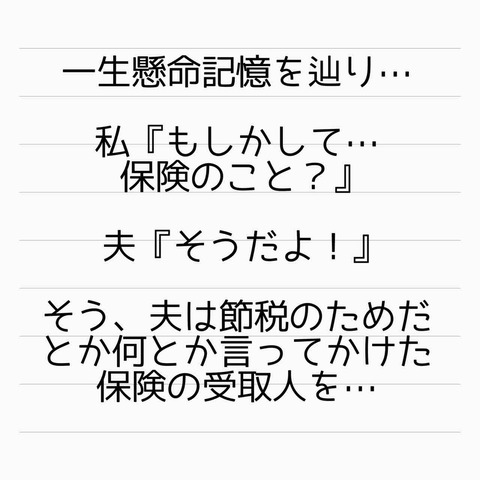 一生懸命記憶を辿り…
私『もしかして…
保険のこと？』
夫『そうだよ！』
そう、夫は節税のためだ
とか何とか言ってかけた
保険の受取人を…